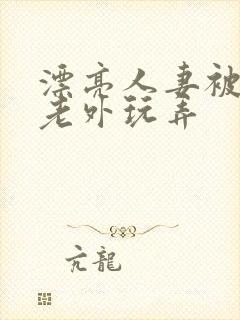 漂亮人妻被
老外玩弄
亢龍